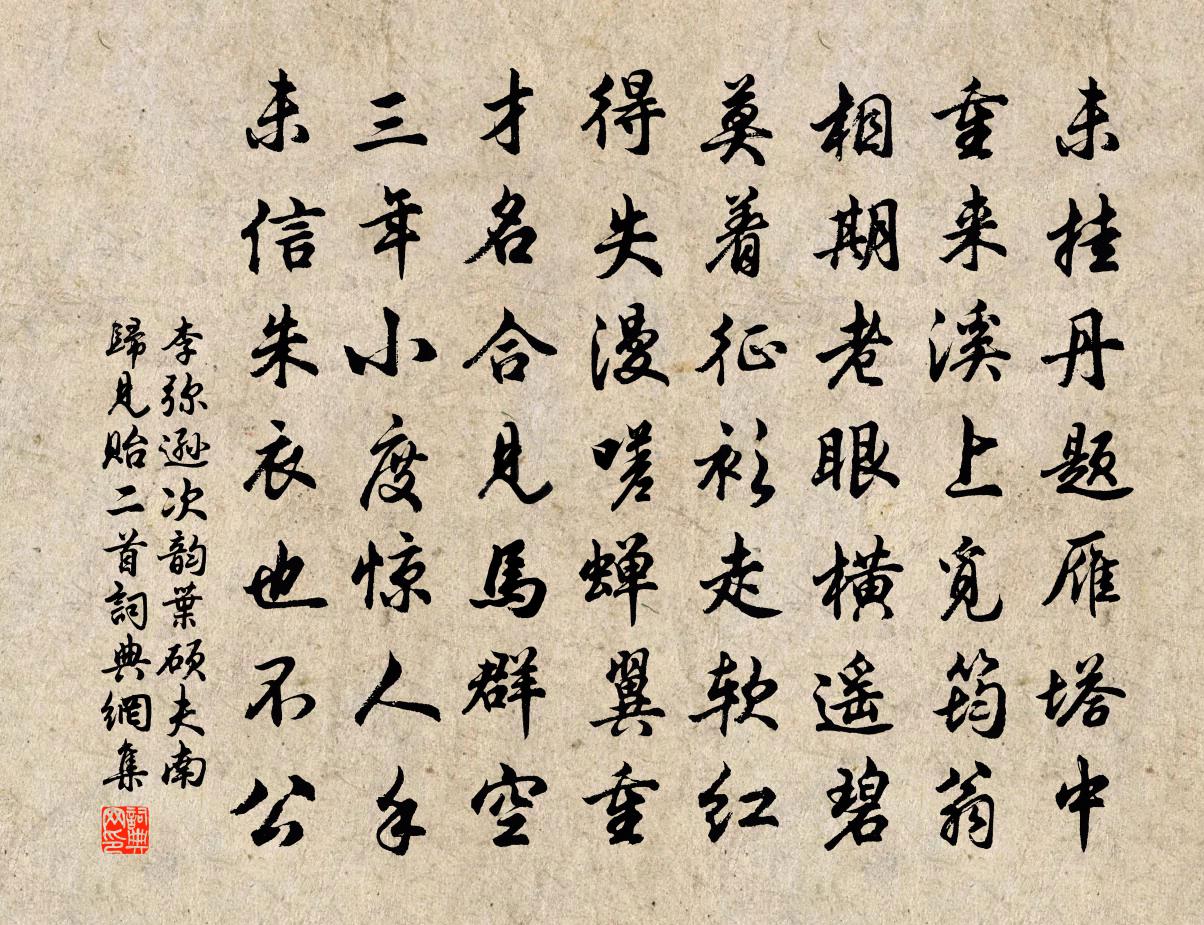 未挂丹题雁塔中
重来溪上觅筠翁
相期老眼横遥碧
莫着征衫走软红
得失漫嗟蝉翼重
才名合见馬群空
三年小度惊人手
未信朱衣也不公
李弥逊次韵葉硕夫南
歸見貽二首詞典網集
詞典網印